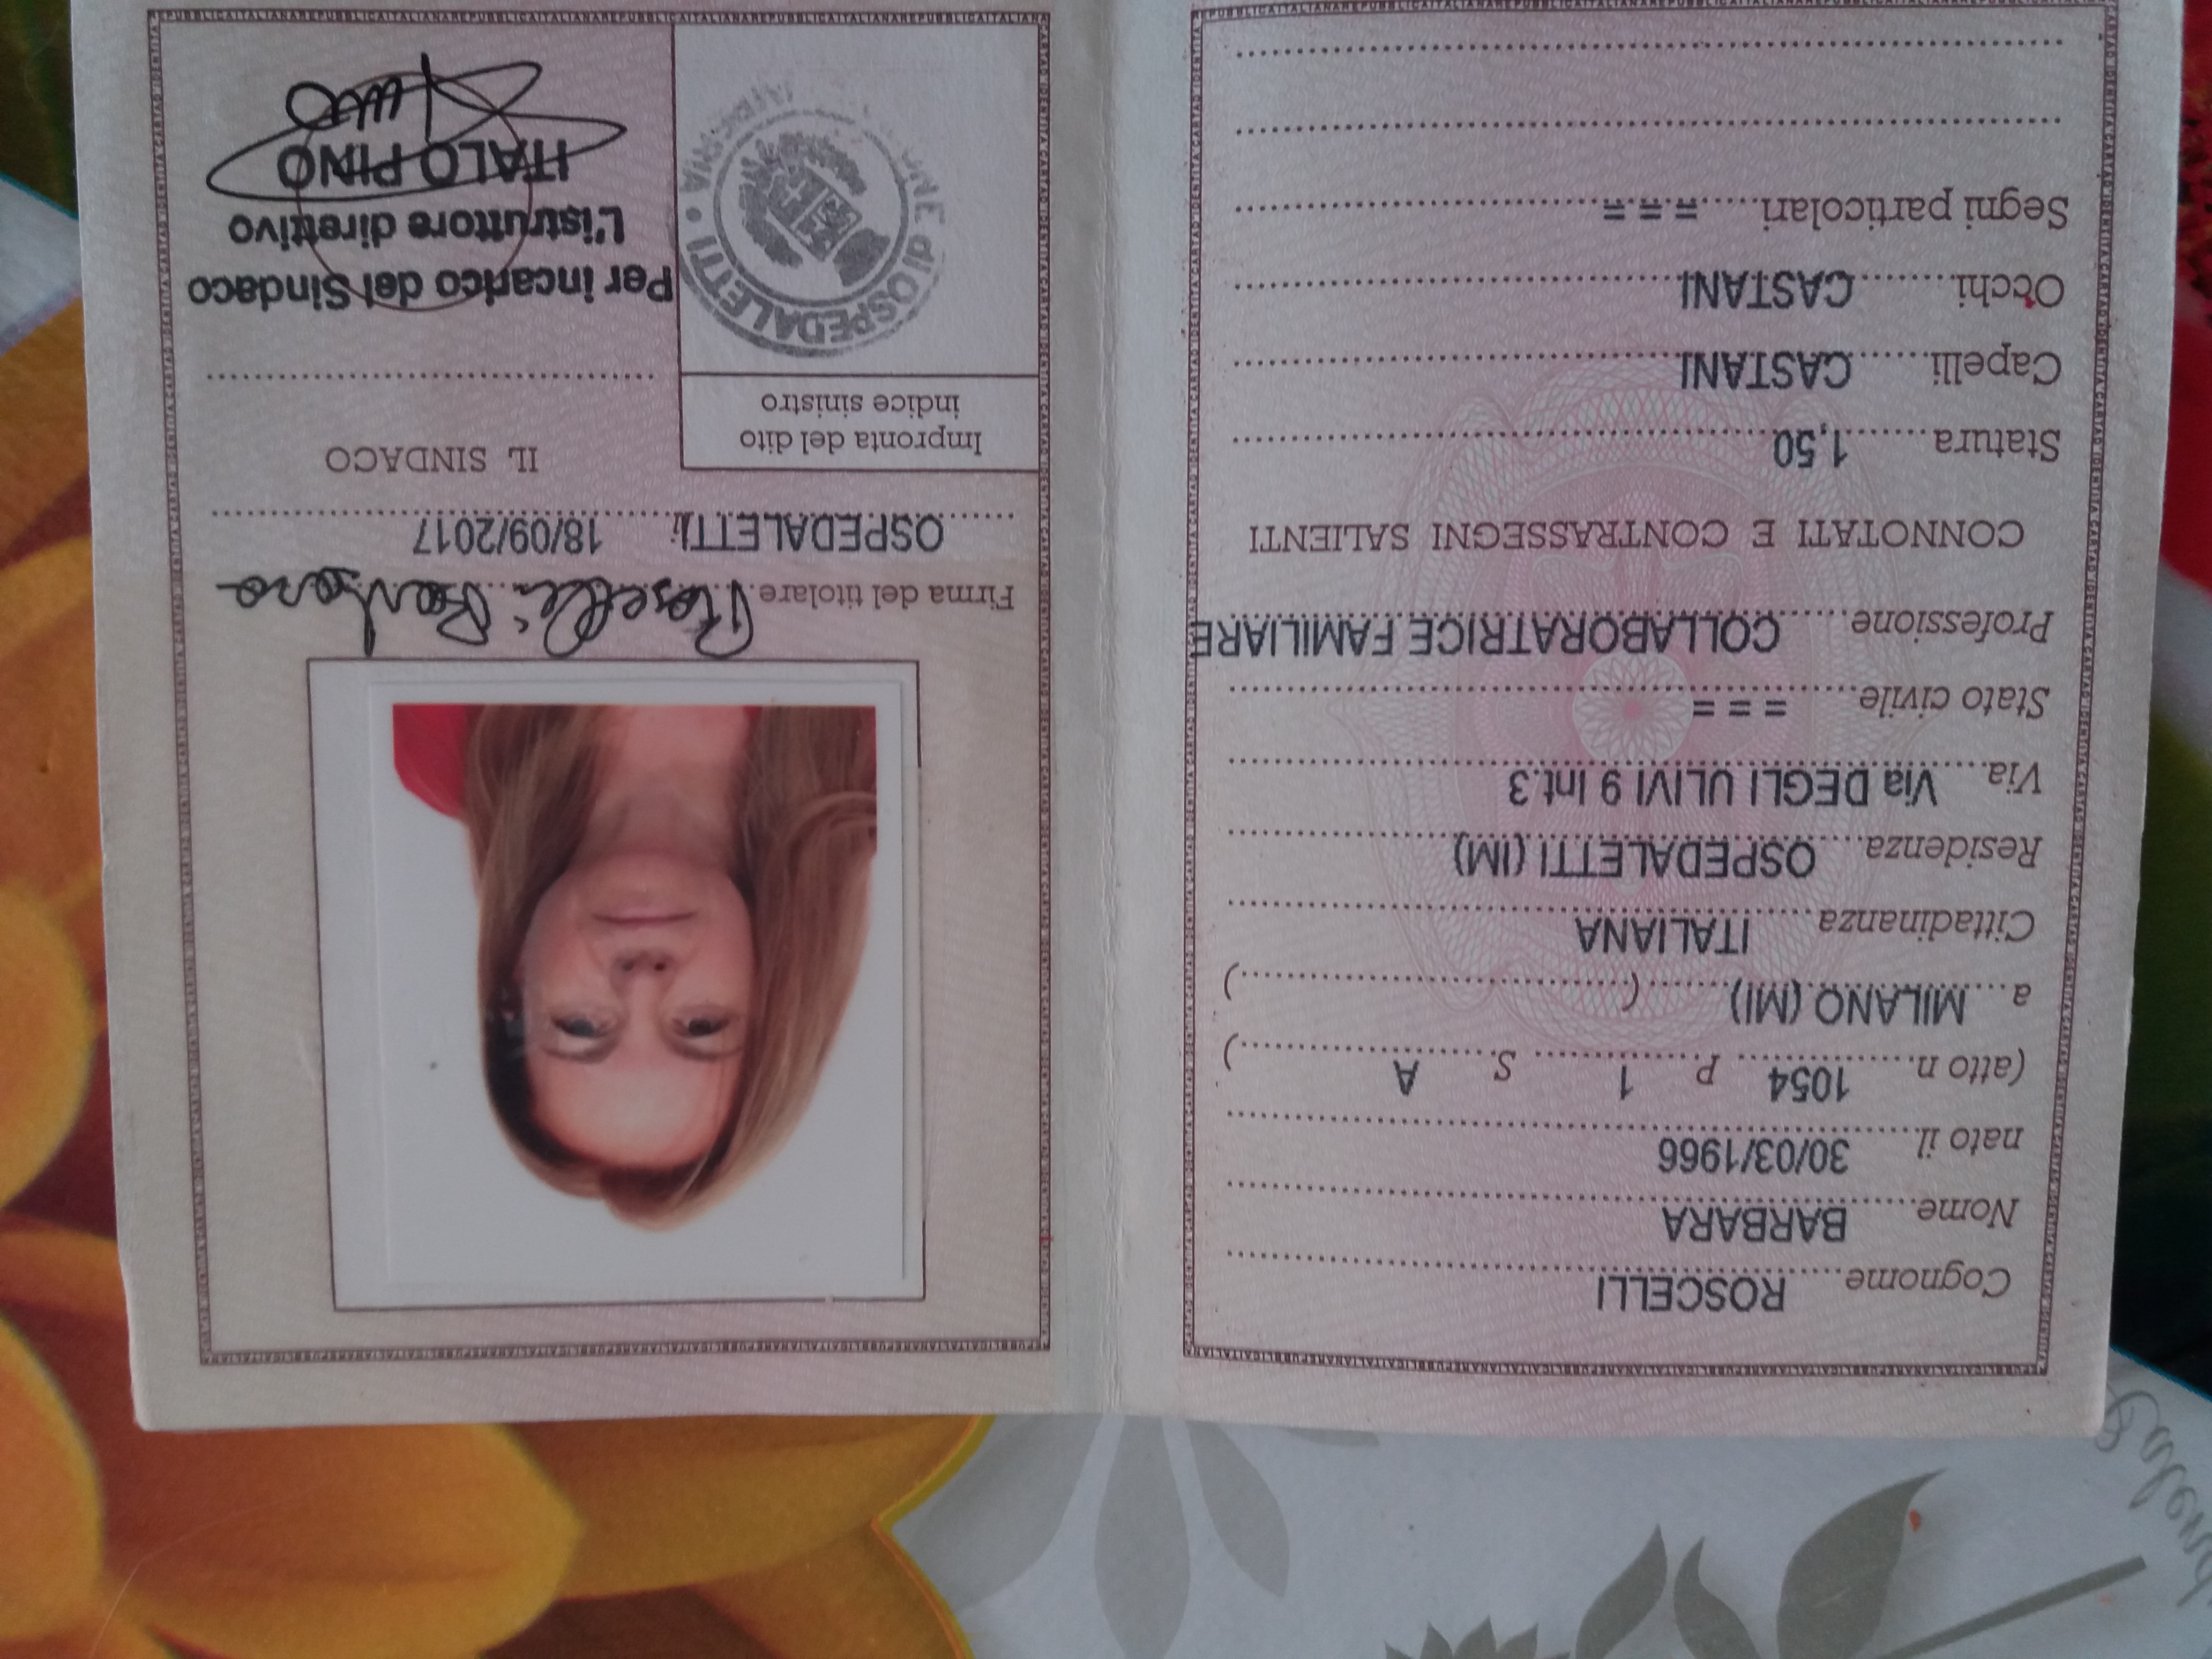 Cognome ROSCELLI
Nome BARBARA
nato il 30/03/1966
(atto n. 1054 P. 1 S. A )
a MILANO (MI) ( )
Cittadinanza ITALIANA
Residenza OSPEDALETTI (IM)
Via Via DEGLI ULIVI 9 Int.3
Stato civile = = =
Professione COLLABORATRICE FAMILIARE
CONNOTATI E CONTRASSEGNI SALIENTI
Statura 1,50
Capelli CASTANI
Occhi CASTANI
Segni particolari = = =
Firma del titolare Roscelli Barbara
OSPEDALETTI li 18/09/2017
Impronta del dito
indice sinistro
IL SINDACO
Per incarico del Sindaco
L'istruttore direttivo
ITALO PINO
OSPEDALETTI